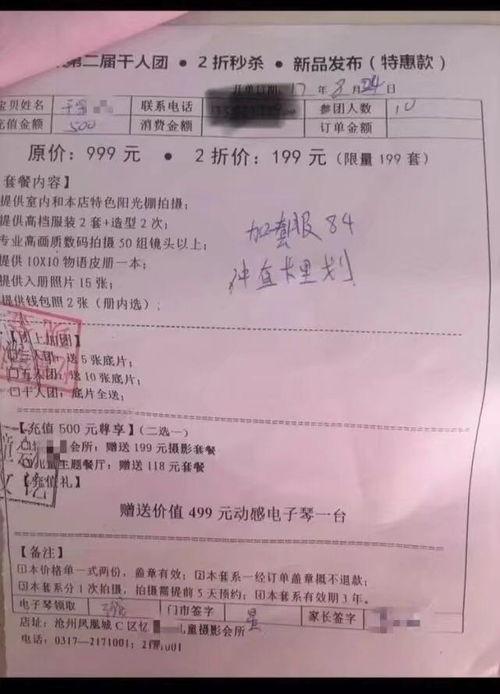 第二届千人团 • 2折秒杀 • 新品发布（特惠款）
开单日期：17年8月24日
宝贝姓名 联系电话 参团人数 10
充值金额 500 消费金额 订单金额
原价：999 元 • 2 折价：199 元（限量 199 套）
套餐内容】
提供室内和本店特色阳光棚拍摄；
提供高档服装 2 套+造型 2 次；
专业高画质数码拍摄 50 组镜头以上；
提供 10X10 物语皮册一本；
提供入册照片 15 张；
提供钱包照 2 张（册内选）；
加套服 84
冲值卡里划
【团上加团】
□三人团：送 5 张底片；
□五人团：送 10 张底片；
□十人团：底片全送；
【充值 500 元尊享】（二选一）
会所：赠送 199 元摄影套餐
□儿童主题餐厅：赠送 118 元套餐
【充值礼】
赠送价值 499 元动感电子琴一台
【备注】
①本价格单一式两份，盖章有效；②本套系一经订单盖章概不退款；
③本套系分 1 次拍摄，拍摄需提前 5 天预约；④本套系有效期 3 年。
电子琴领取 门市签字 家长签字
店址：沧州凤凰城 C 区忆 儿童摄影会所
电话：0317-2171001；